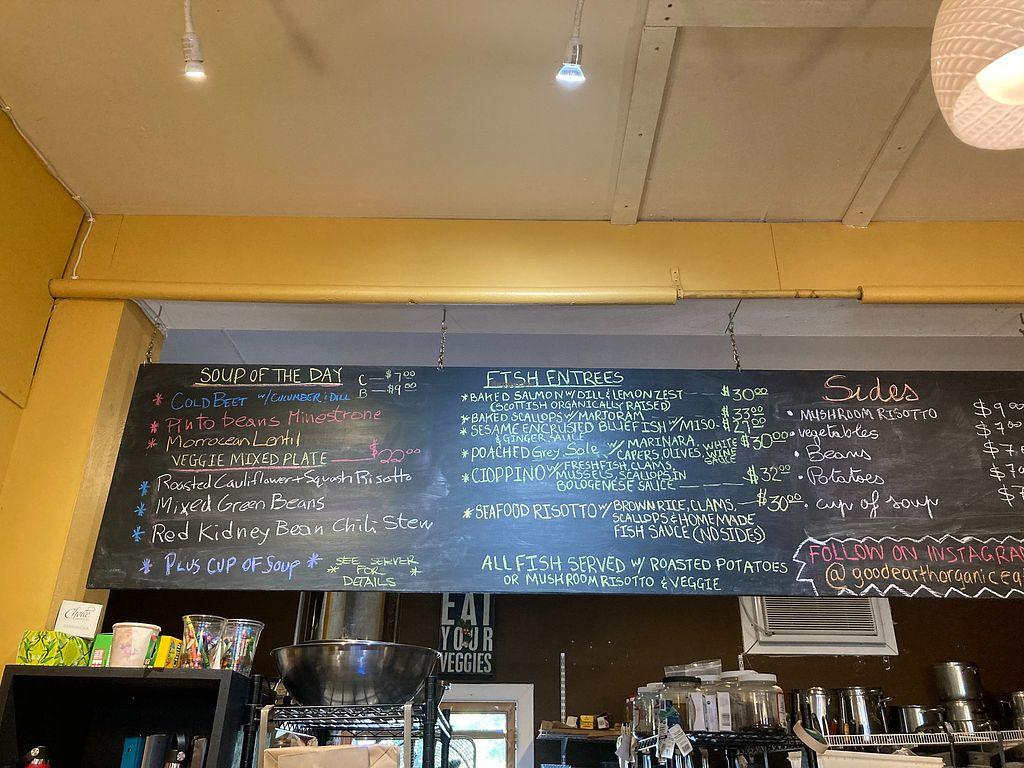 SOUP OF THE DAY
C — $7.00
B — $9.00
* COLD BEET w/ CUCUMBER & DILL
* Pinto beans Minestrone
* Morrocean Lentil
VEGGIE MIXED PLATE — $22.00
* Roasted Cauliflower + Squash Risotto
* Mixed Green Beans
* Red Kidney Bean Chili Stew
* PLUS CUP OF SOUP *
SEE SERVER
* FOR *
DETAILS
FISH ENTREES
* BAKED SALMON W/ DILL & LEMON ZEST — $30.00
(SCOTTISH ORGANICALLY RAISED)
* BAKED SCALLOPS W/ MARJORAM — $33.00
* SESAME ENCRUSTED BLUEFISH W/ MISO - $29.00
& GINGER SAUCE
* POACHED Grey Sole w/ MARINARA, CAPERS, OLIVES, WHITE WINE SAUCE $30.00
* CIOPPINO W/ FRESH FISH, CLAMS,
MUSSELS, SCALLOPS IN
BOLOGENESE SAUCE — $32.00
* SEAFOOD RISOTTO W/ BROWN RICE, CLAMS, — $30.00
SCALLOPS & HOMEMADE
FISH SAUCE (NO SIDES)
ALL FISH SERVED W/ ROASTED POTATOES
OR MUSHROOM RISOTTO & VEGGIE
Sides
• MUSHROOM RISOTTO $9.00
• vegetables $7.00
• Beans
• Potatoes
• cup of soup
FOLLOW ON INSTAGRAM
@goodearthorganicea
Choice
EAT
YOUR
VEGGIES